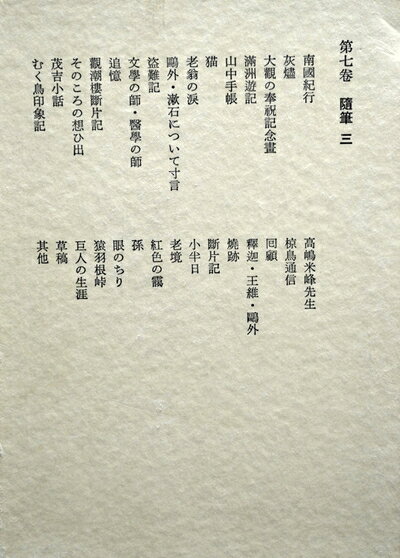 第七卷 隨筆 三
南國紀行
灰燼
大觀の奉祝記念畫
滿洲遊記
山中手帳
猫
老翁の淚
鷗外・漱石について寸言
盜難記
文學の師・醫學の師
追憶
觀潮樓斷片記
そのころの想ひ出
茂吉小話
むく鳥印象記
高嶋米峰先生
椋鳥通信
回顧
釋迦・王維・鷗外
燒跡
斷片記
小半日
老境
紅色の靄
孫
眼のちり
猿羽根峠
巨人の生涯
草稿
其他